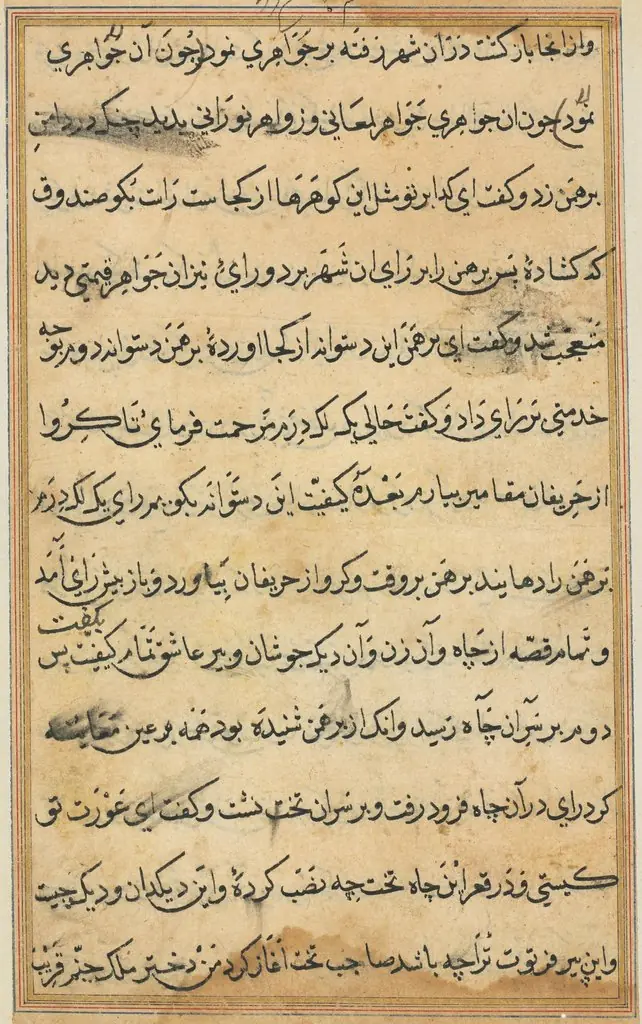 وازانجا بازکشت دران شهر رفته بر جواهری نمود چون آن جواهری
نمود چون ان جواهری جواهر لمعانی و زواهر نورانی بدید چنک در دامن
برهمن زد و کفت ای کدا بر تو مثل این کوهرها از کجاست راست بکو صندوق
که کشادهٔ پس برهمن را بر رای ان شهر برد و رایٔ نیز ان جواهر قیمتی دید
متعجب شد و کفت ای برهمن این دستوانه از کجا اوردهٔ برهمن دستوانه دوم بوجه
خدمتی بر رای داد و کفت حالی یک لک درم مرحمت فرمایٔ تا کروا
از حریفان مقامر بیارم بعده کیفیت این دستوانه بکویم رای یک لک درم
برهمن را دهانید برهمن برفت و کرو از حریفان بیاورد و باز پیش رای آمد
و تمام قصه از چاه وآن زن وآن دیک جوشان و پیر عاشق تمام کیفیت بکفت پس
دوم بر سر ان چاه رسید وانک از برهمن شنیده بود همه بر عین معاینه
کرد رای در آن چاه فرود رفت و بر سر ان تخت نشست و کفت ای عورت تو
کیستی و در قعر این چاه تخت چه نصب کردهٔ و این دیکدان و دیک چیست
واین پیر فرتوت ترا چه باشد صاحب تخت آغاز کرد من دختر ملک جنم قریب